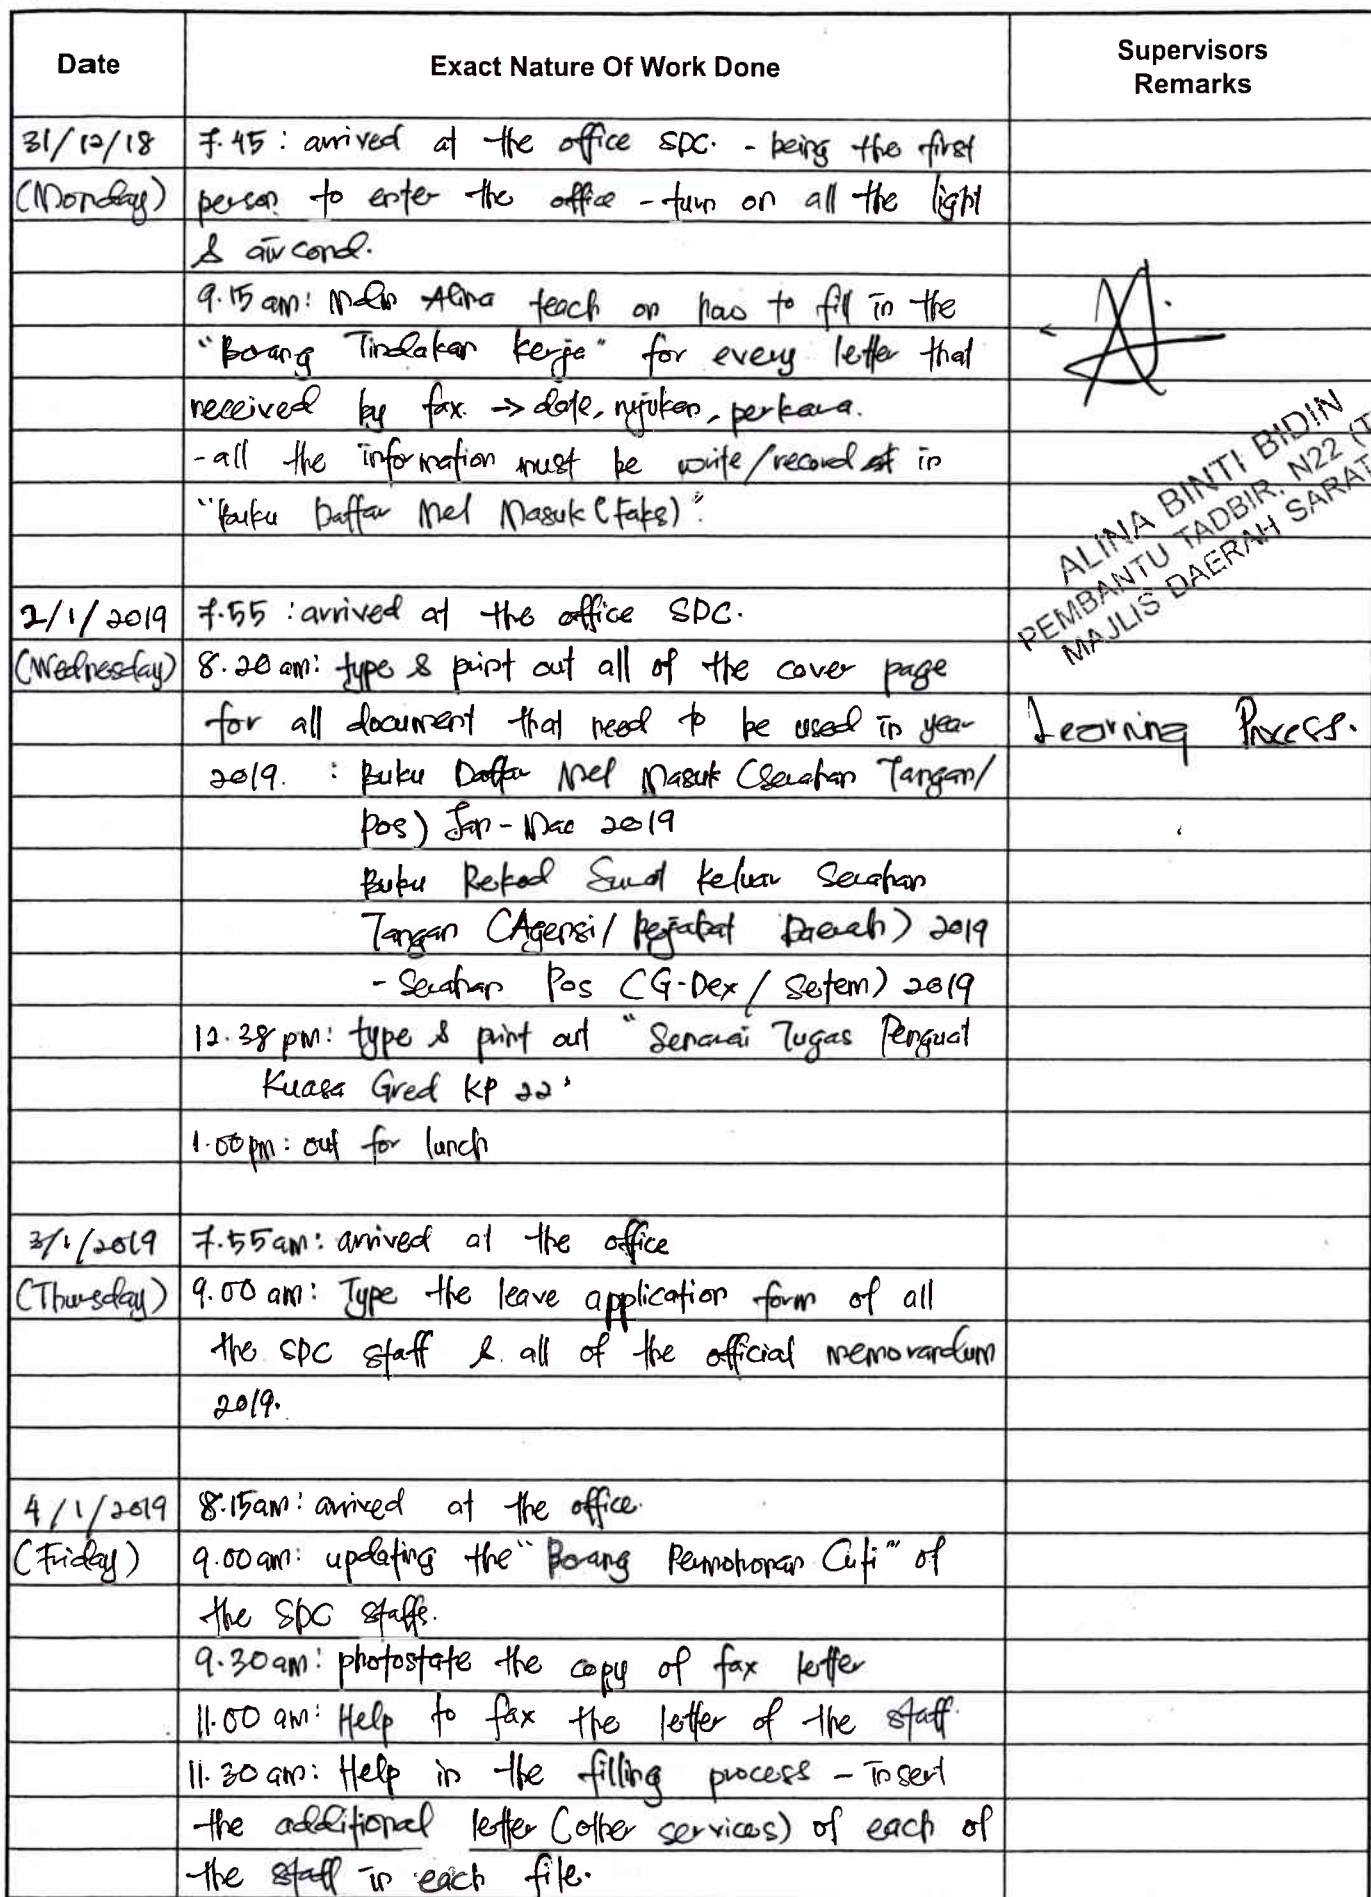 Date
Exact Nature Of Work Done
Supervisors
Remarks
31/12/18
7.45 : arrived at the office SDC. - being the first
(Monday)
person to enter the office - turn on all the light
& aircond.
9.15 am: Mdm Alina teach on how to fill in the
"Borang Tindakan Kerja" for every letter that
received by fax. -> date, rujukan, perkara.
- all the information must be write/record in
"Buku Daftar Mel Masuk (Faks)".
ALINA BINTI BIDIN
PEMBANTU TADBIR, N22 (T
MAJLIS DAERAH SARAT
2/1/2019
7.55 : arrived at the office SDC.
(Wednesday)
8.20 am: type & print out all of the cover page
for all document that need to be used in year
Learning Process.
2019. : Buku Daftar Mel Masuk (Serahan Tangan/
Pos) Jan - Mac 2019
Buku Rekod Surat Keluar Serahan
Tangan (Agensi/ Pejabat Daerah) 2019
- Serahan Pos (G-Dex / Setem) 2019
12.38 pm: type & print out "Senarai Tugas Penguat
Kuasa Gred KP 22"
1.00 pm: out for lunch
3/1/2019
7.55 am: arrived at the office
(Thursday)
9.00 am: Type the leave application form of all
the SDC staff & all of the official memorandum
2019.
4/1/2019
8.15 am: arrived at the office.
(Friday)
9.00 am: updating the "Borang Permohonan Cuti" of
the SDC staffs.
9.30 am: photostate the copy of fax letter
11.00 am: Help to fax the letter of the staff.
11.30 am: Help in the filling process - insert
the additional letter (other services) of each of
the staff in each file.